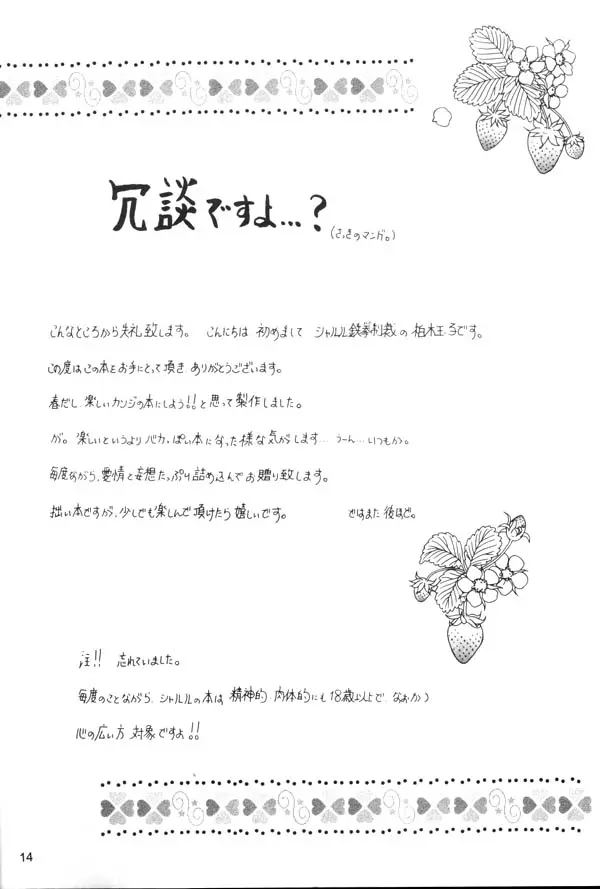 冗談ですよ…？
(さっきのマンガ。)
こんなところから失礼致します。 こんにちは 初めまして シャルル鉄拳制裁の 柏木王子です。
この度はこの本をお手にとって頂き ありがとうございます。
春だし、楽しいカンジの本にしよう!!と思って製作しました。
が。楽しいというよりバカっぽい本になった様な気がします… うーん…いつもか。
毎度ながら、愛情と妄想たっぷり詰め込んでお贈り致します。
拙い本ですが、少しでも楽しんで頂けたら嬉しいです。 ではまた後ほど。
注!! 忘れていました。
毎度のことながら、シャルルの本は 精神的・肉体的にも18歳以上で、なおかつ
心の広い方 対象ですよ!!
14